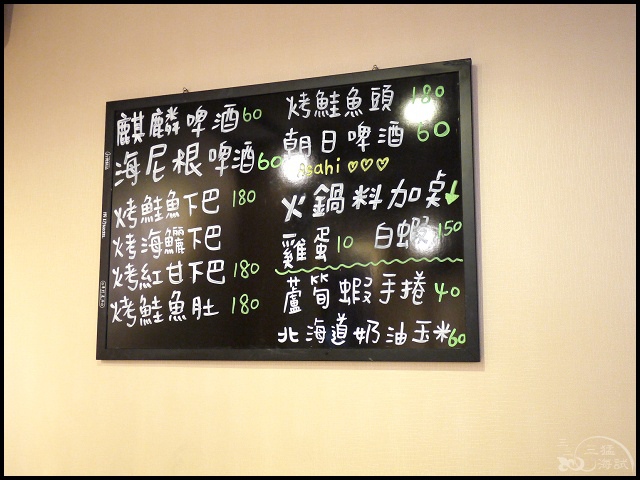 麒麟啤酒60
海尼根啤酒60
烤鮭魚下巴 180
烤海鱺下巴
烤紅甘下巴 180
烤鮭魚肚 180
烤鮭魚頭 180
朝日啤酒 60
Asahi ♡♡♡
火鍋料加桌↓
雞蛋10 白蝦150
蘆筍蝦手捲 40
北海道奶油玉米60
三猛
海賊